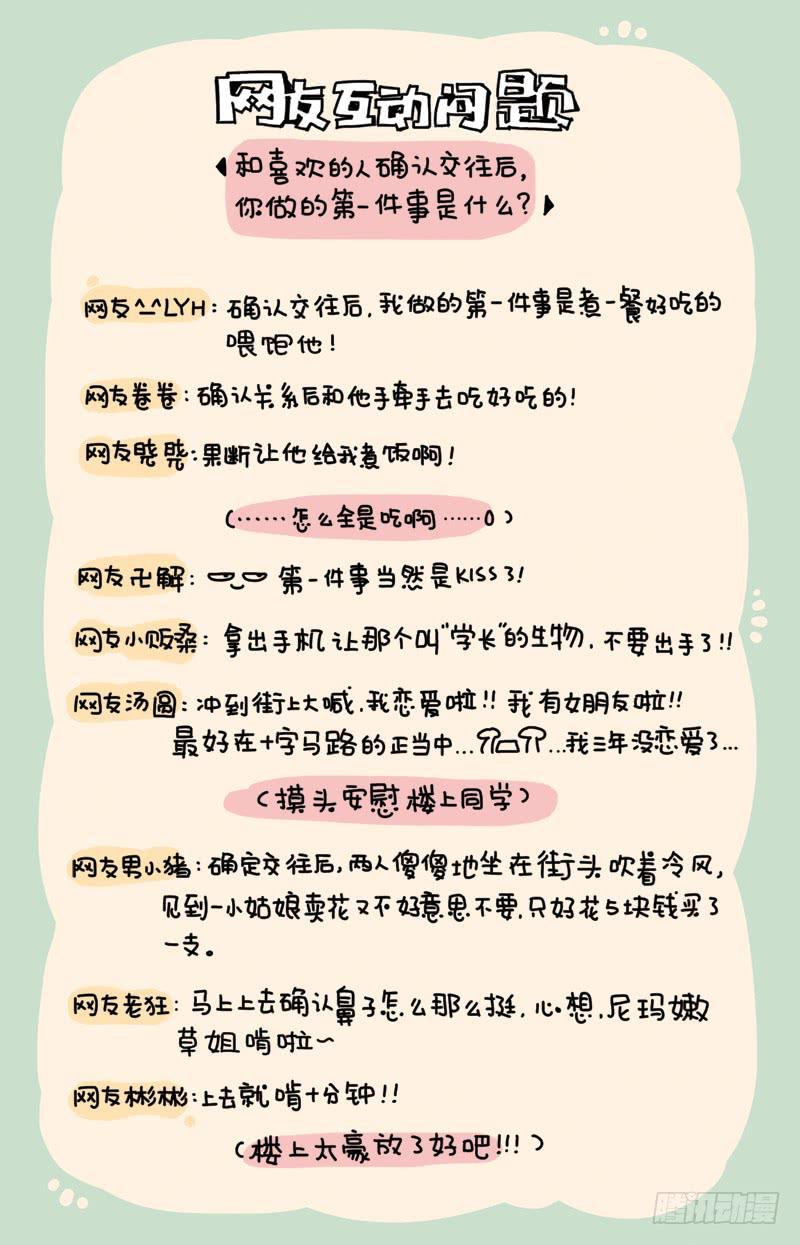 网友互动问题
和喜欢的人确认交往后,
你做的第一件事是什么?
网友^_^LYH:确认交往后,我做的第一件事是煮一餐好吃的
喂饱他!
网友卷卷:确认关系后和他手牵手去吃好吃的!
网友:果断让他给我煮饭啊!
(……怎么全是吃啊……0)
网友卍解: 第一件事当然是KISS了!
网友小贩桑:拿出手机让那个叫"学长"的生物,不要出手了!!
网友汤圆:冲到街上大喊,我恋爱啦!!我有女朋友啦!!
最好在十字马路的正当中...我三年没恋爱了...
(摸头安慰楼上同学)
网友男小猪:确定交往后,两人傻傻地坐在街头吹着冷风,
见到一小姑娘卖花又不好意思不要,只好花5块钱买了
一支。
网友老狂:马上上去确认鼻子怎么那么挺,心想,尼玛嫩
草姐啃啦~
网友彬彬:上去就啃十分钟!!
(楼上太豪放了好吧!!!)
腾讯动漫